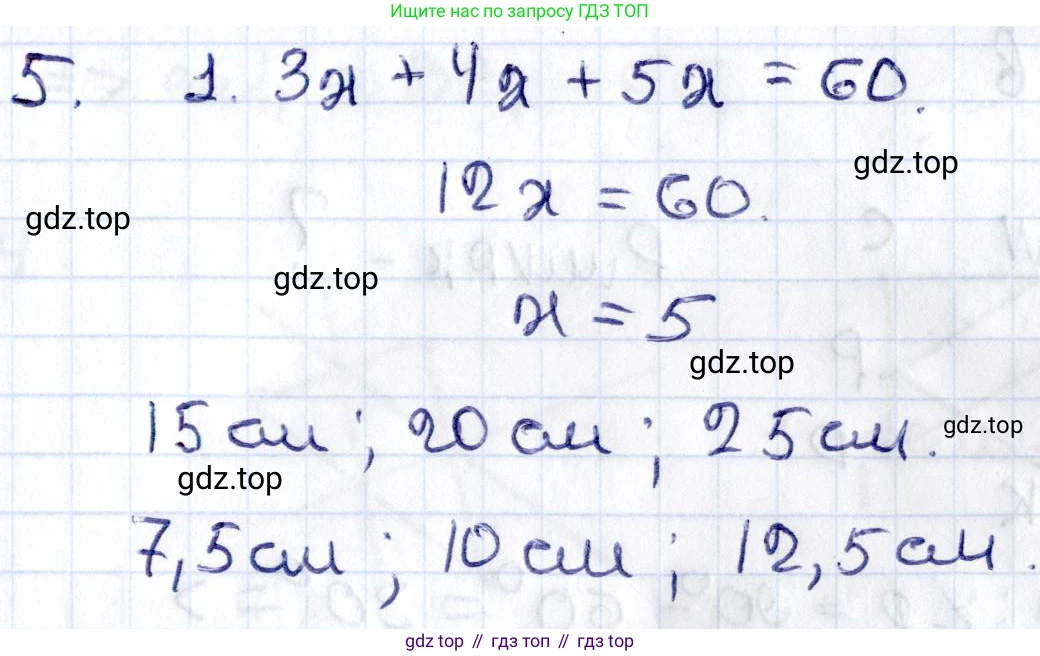 Ищите нас по запросу ГДЗ ТОП
5. 1. 3x + 4x + 5x = 60.
gdz.top
12x = 60.
gdz.top
gdz.top
x = 5
gdz.top
15 см; 20 см; 25 см.
gdz.top
gdz.top
7,5 см; 10 см; 12,5 см.
gdz top // гдз топ // гдз top